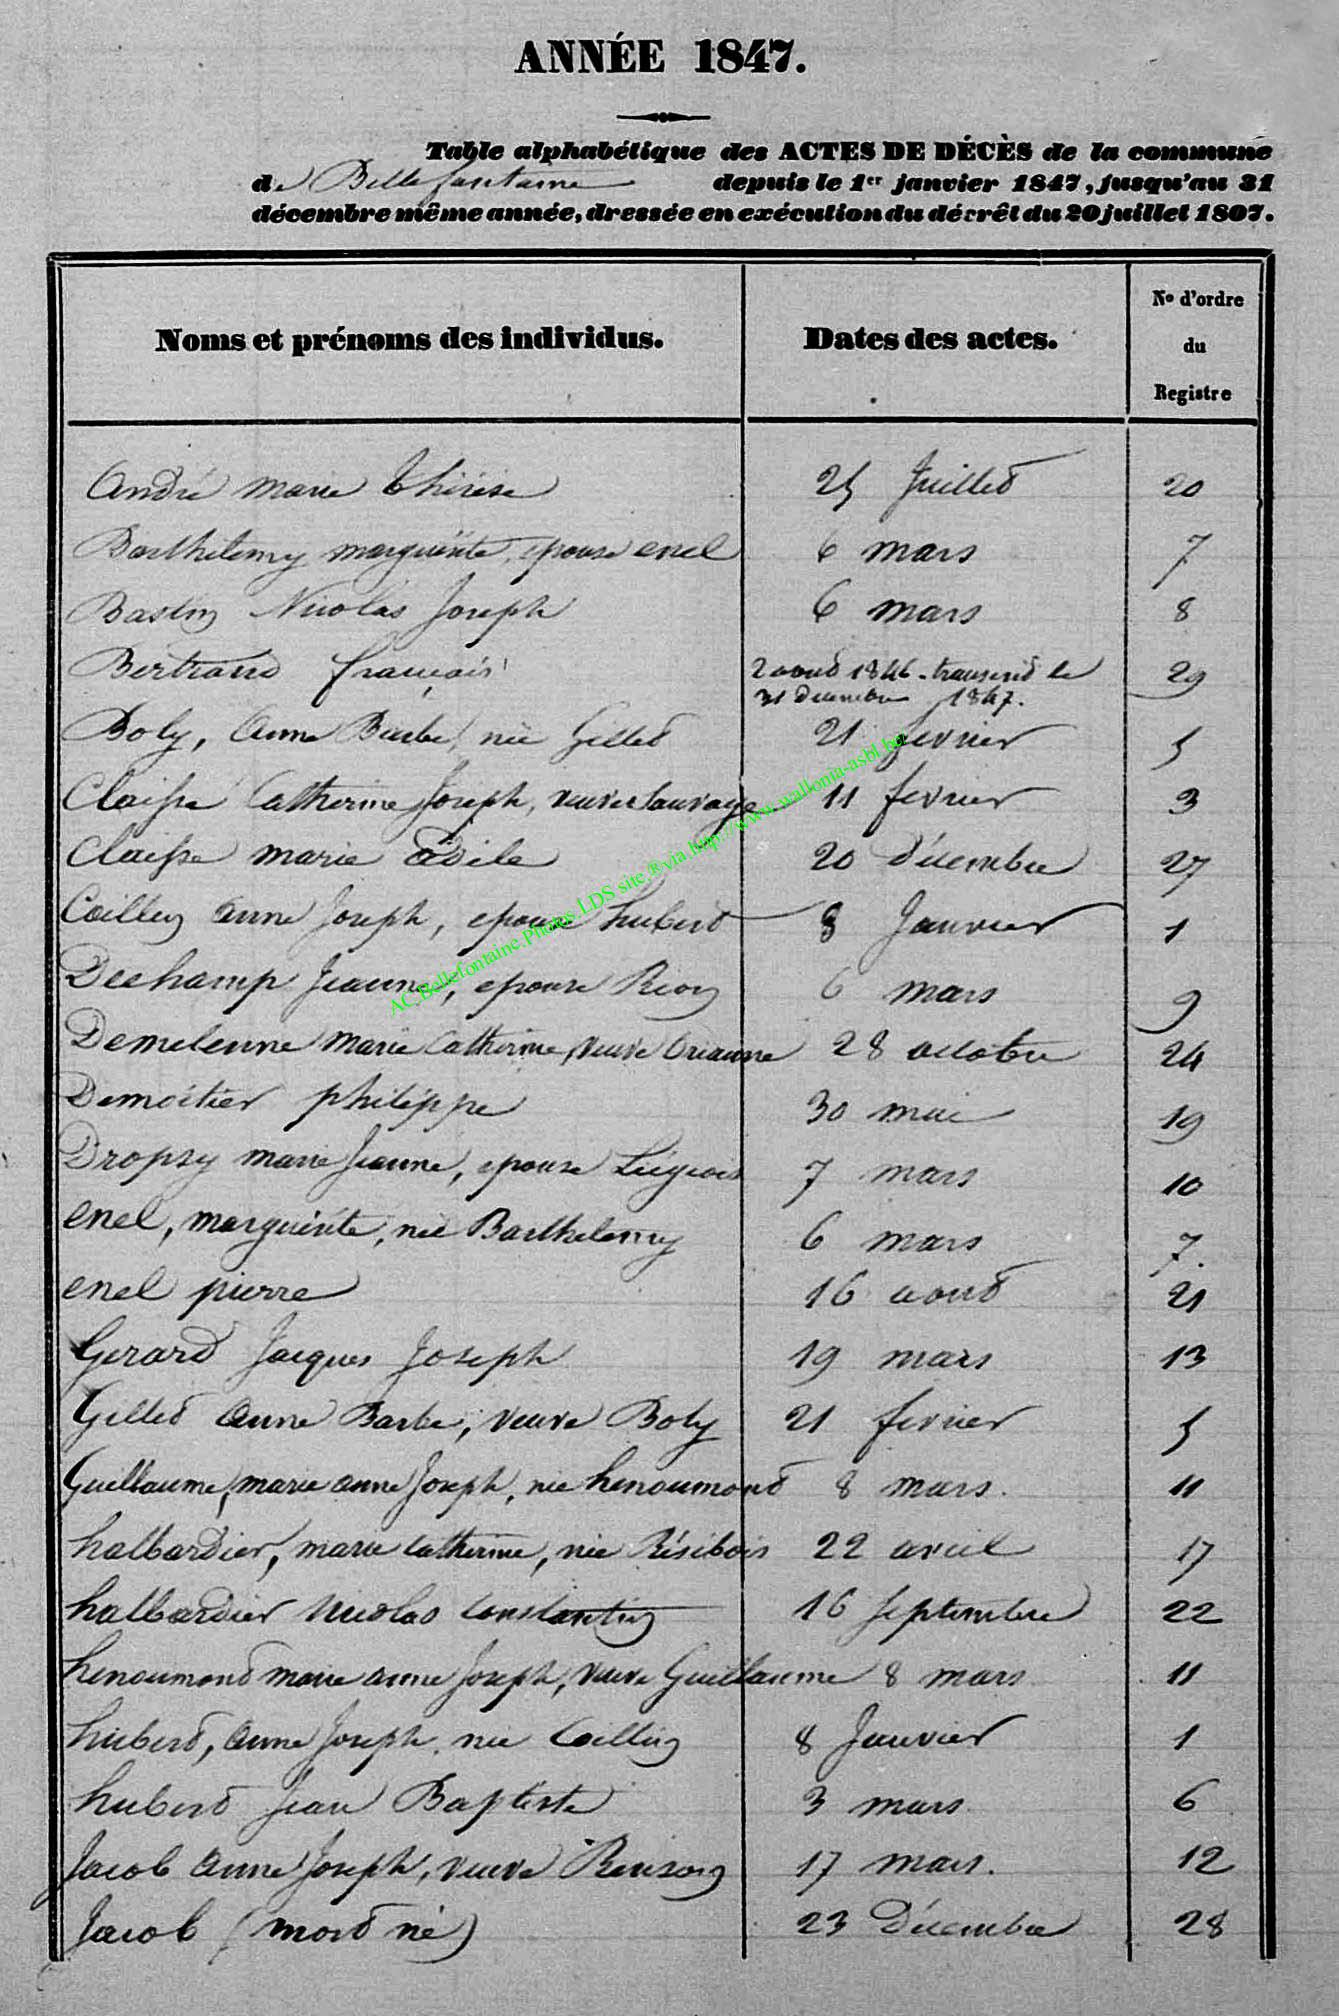 ANNÉE 1847.
Table alphabétique des ACTES DE DÉCÈS de la commune
de Bellefontaine depuis le 1er janvier 1847, jusqu'au 31
décembre même année, dressée en exécution du décrêt du 20 juillet 1807.
Noms et prénoms des individus. Dates des actes. No d'ordre du Registre
André marie thérèse 25 Juillet 20
Barthelemy marguerite, epouse enel 6 mars 7
Bastin Nicolas Joseph 6 mars 8
Bertrand françois 2 aout 1846 - transcrit le 31 decembre 1847. 29
Boly, Anne Barbe, née Gillet 21 fevrier 5
Claisse Catherine Joseph, veuve Sauvage 11 fevrier 3
Claisse marie odile 20 décembre 27
Collin anne Joseph, epouse hubert 8 Janvier 1
Dechamp Jeanne, epouse Rion 6 mars 9
Demelenne marie Catherine, veuve Orianne 28 octobre 24
Demoitier philippe 30 mai 19
Dropsy marie Jeanne, epouse Liégeois 7 mars 10
enel, marguerite, née Barthelemy 6 mars 7.
enel pierre 16 aout 21
Gerard Jacques Joseph 19 mars 13
Gillet Anne Barbe, veuve Boly 21 fevrier 5
Guillaume, marie anne Joseph, née henoumont 8 mars. 11
halbardier, marie catherine, née Résibois 22 avril 17
halbardier nicolas constantin 16 septembre 22
henoumont marie anne Joseph, veuve Guillaume 8 mars 11
hubert, Anne Joseph, née Collin 8 Janvier 1
hubert Jean Baptiste 3 mars 6
Jacob Anne Joseph, veuve Renson 17 mars. 12
Jacob (mort né) 23 Décembre 28
AC.Bellefontaine.Photos.LDS site.®via.http://www.wallonia-asbl.be/